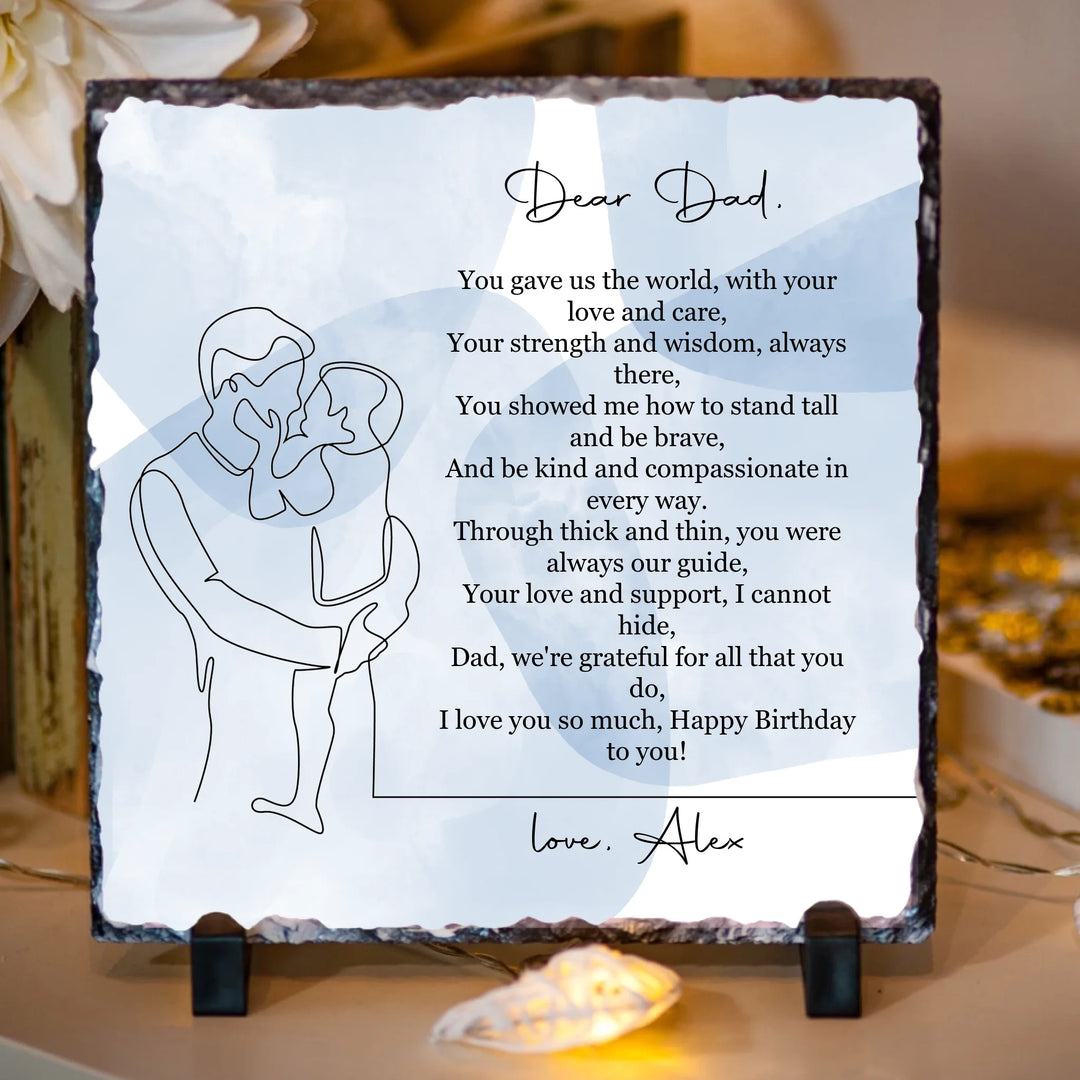 Dear Dad,
You gave us the world, with your
love and care,
Your strength and wisdom, always
there,
You showed me how to stand tall
and be brave,
And be kind and compassionate in
every way.
Through thick and thin, you were
always our guide,
Your love and support, I cannot
hide,
Dad, we're grateful for all that you
do,
I love you so much, Happy Birthday
to you!
love, Alex